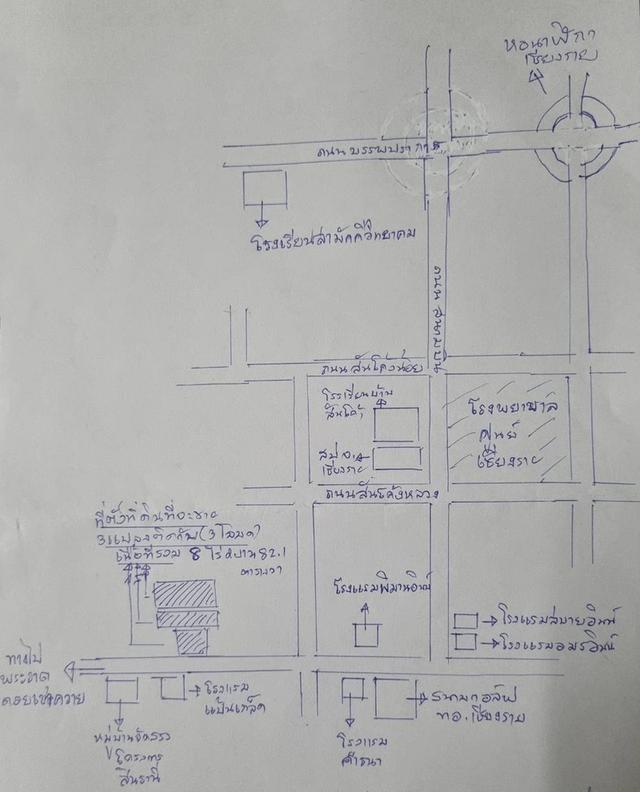 หอนาฬิกา
เชียงราย
ถนนบรรพปราการ
โรงเรียนสามัคคีวิทยาคม
ถนนสนามบิน
ถนนสันโค้งน้อย
โรงเรียนบ้าน
สันโค้ง
โรงพยาบาล
ศูนย์
เชียงราย
สปอ.
เชียงราย
ถนนสันโค้งหลวง
ที่ตั้งที่ดินที่จะขาย
3แปลงติดกัน(3โฉนด)
เนื้อที่รวม 8 ไร่ 82.1
ตารางวา
โรงแรมพิมานอินน์
โรงแรมสบายอินน์
โรงแรมอมรอินน์
ทางไป
พระธาตุ
ดอยเขาควาย
โรงแรม
แป้นเกล็ด
สนามกอล์ฟ
ทอ.เชียงราย
หมู่บ้านจัดสรร
โครงการ
สินธานี
โรงแรม